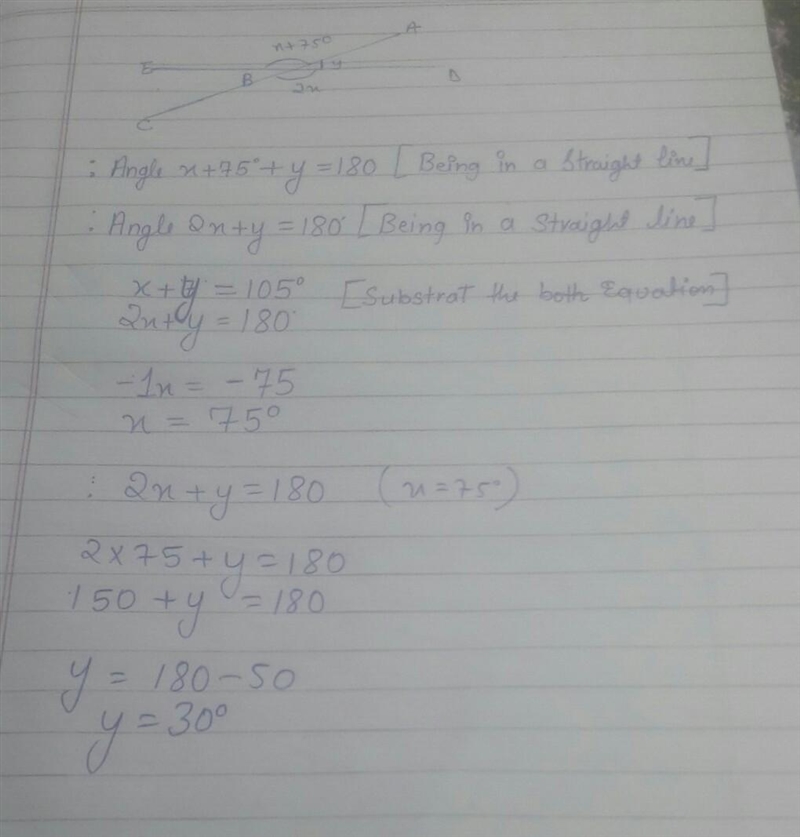 A
x+75°
E B y D
2x
C
: Angle x+75°+y=180 [Being in a Straight line]
: Angle 2x+y=180° [Being in a straight line]
x+y=105° [Substrat the both Equation]
2x+y=180
-1x=-75
x=75°
: 2x+y=180 (x=75°)
2×75+y=180
150+y=180
y=180-50
y=30°